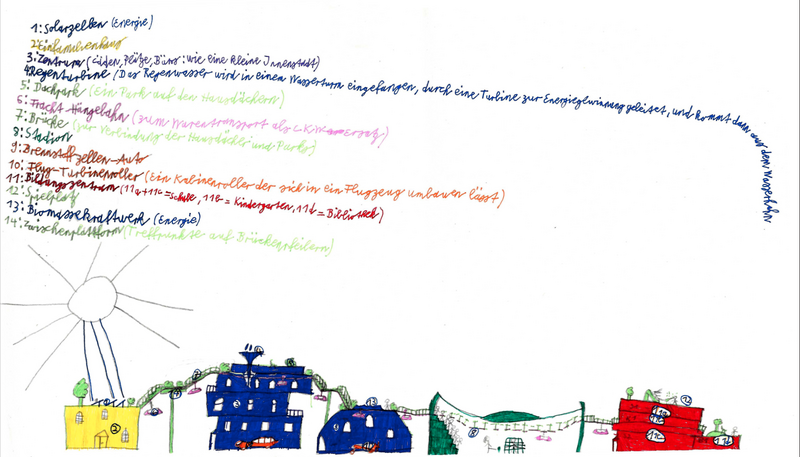 1: Solarzellen (Energie)
2: Einfamilienhaus
3: Zentrum (Läden, Plätze, Büro: wie eine kleine Innenstadt)
4: Regenturbine (Das Regenwasser wird in einem Wasserturm eingefangen, durch eine Turbine zur Energiegewinnung geleitet, und kommt dann aus dem Wasserhahn.
5: Dachpark (Ein Park auf den Hausdächern)
6: Fracht-Hängebahn (zum Warentransport als LKW-Ersatz)
7: Brücke (zur Verbindung der Hausdächer und Parks)
8: Stadion
9: Brennstoffzellen-Auto
10: Flug-Turbinenroller (Ein Kabinenroller der sich in ein Flugzeug umbauen lässt)
11: Bildungszentrum (11a+11c=Schule, 11b= Kindergarten, 11d= Bibliothek)
12: Spielplatz
13: Biomassekraftwerk (Energie)
14: Zwischenplattform (Treffpunkte auf Brückenpfeilern)